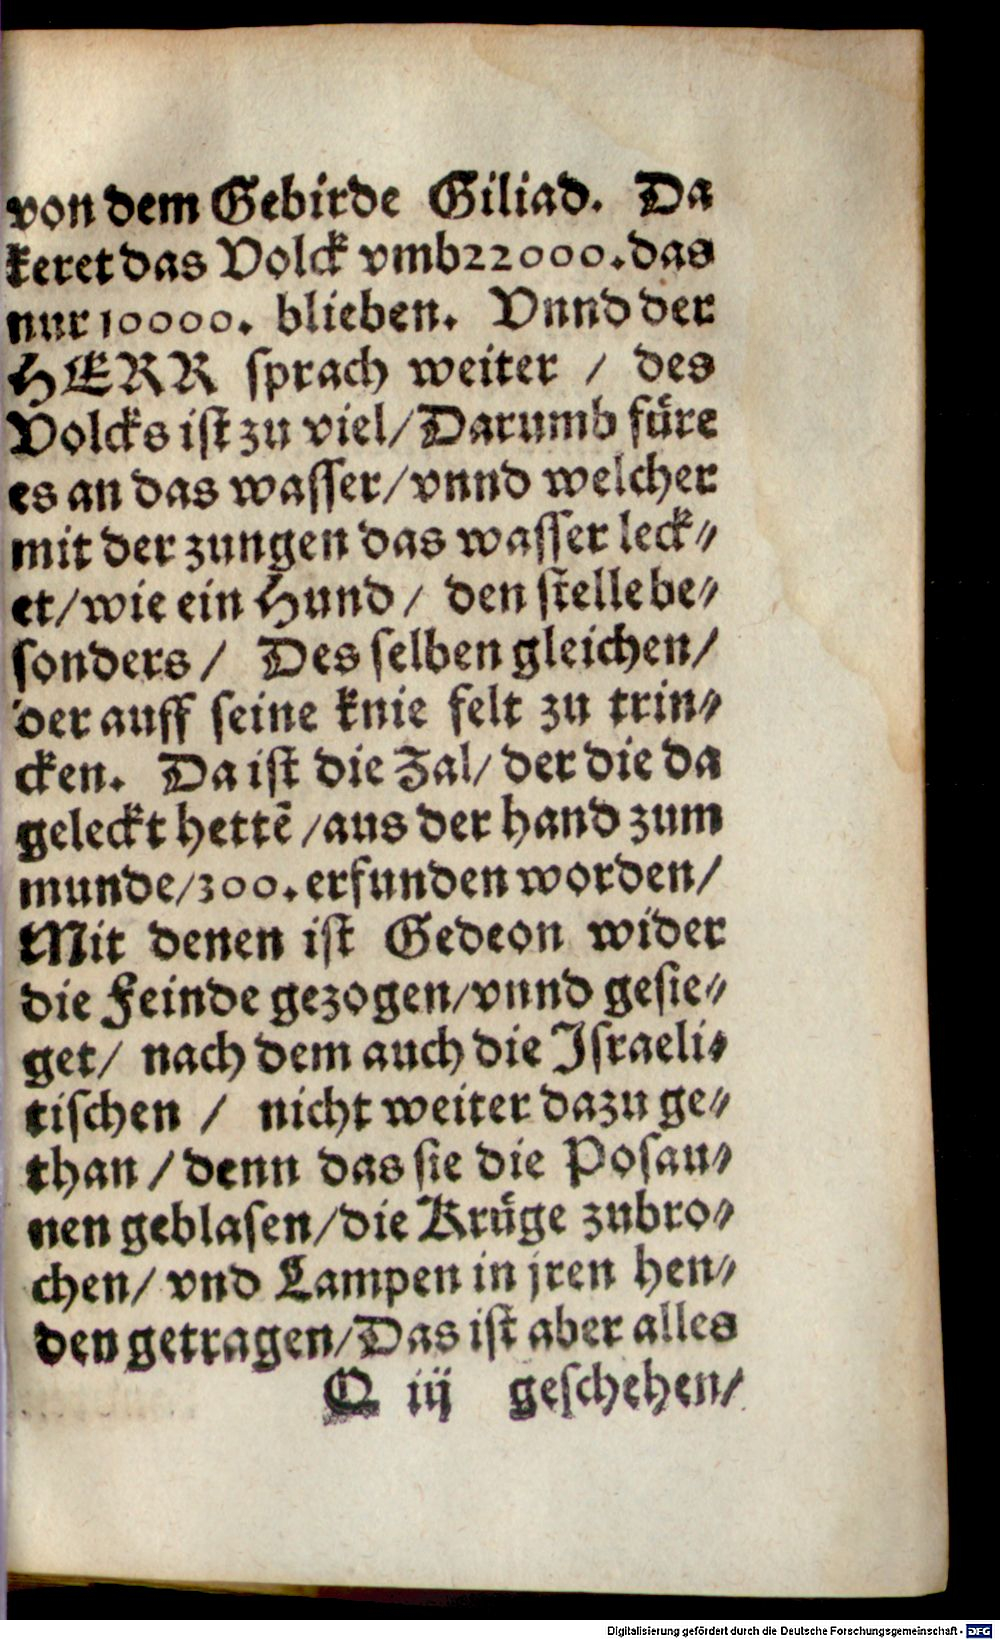 von dem Gebirde Giliad. Da
keret das Volck vmb 22000. das
nur 10000. blieben. Vnnd der
HERR sprach weiter / des
Volcks ist zu viel / Darumb füre
es an das wasser / vnnd welcher
mit der zungen das wasser leck⸗
et / wie ein Hund / den stelle be⸗
sonders / Des selben gleichen /
der auff seine knie felt zu trin⸗
cken. Da ist die Zal / der die da
geleckt hettē / aus der hand zum
munde / 300. erfunden worden /
Mit denen ist Gedeon wider
die Feinde gezogen / vnnd gesie⸗
get / nach dem auch die Israeli⸗
tischen / nicht weiter dazu ge⸗
than / denn das sie die Posau⸗
nen geblasen / die Krüge zubro⸗
chen / vnd Lampen in jren hen⸗
den getragen / Das ist aber alles
Q iij geschehen /
Digitalisierung gefördert durch die Deutsche Forschungsgemeinschaft - DFG